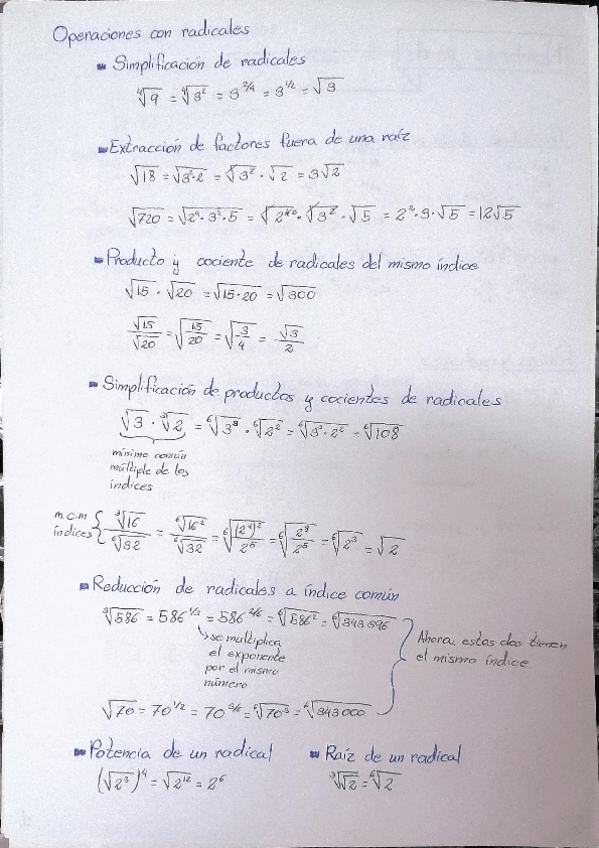 Operaciones con radicales
Simplificación de radicales
⁴√9 = ⁴√3² = 3^2/4 = 3^1/2 = √3
Extracción de factores fuera de una raíz
√18 = √3²·2 = √3² · √2 = 3√2
√720 = √2⁴·3²·5 = √2⁴ · √3² · √5 = 2²·3·√5 = 12√5
Producto y cociente de radicales del mismo índice
√15 · √20 = √15·20 = √300
√15/√20 = √15/20 = √3/4 = √3/2
Simplificación de productos y cocientes de radicales
√3 · ³√2 = ⁶√3³ · ⁶√2² = ⁶√3³·2² = ⁶√108
mínimo común
múltiple de los
índices
m.c.m
índices
³√16/⁶√32 = ⁶√16²/⁶√32 = ⁶√(2⁴)²/2⁵ = ⁶√2⁸/2⁵ = ⁶√2³ = √2
Reducción de radicales a índice común
³√586 = 586^1/3 = 586^2/6 = ⁶√586² = ⁶√343 396
se multiplica
el exponente
por el mismo
número
Ahora estas dos tienen
el mismo índice
√70 = 70^1/2 = 70^3/6 = ⁶√70³ = ⁶√343 000
Potencia de un radical
(√2³)⁴ = √2¹² = 2⁶
Raíz de un radical
³√√2 = ⁶√2